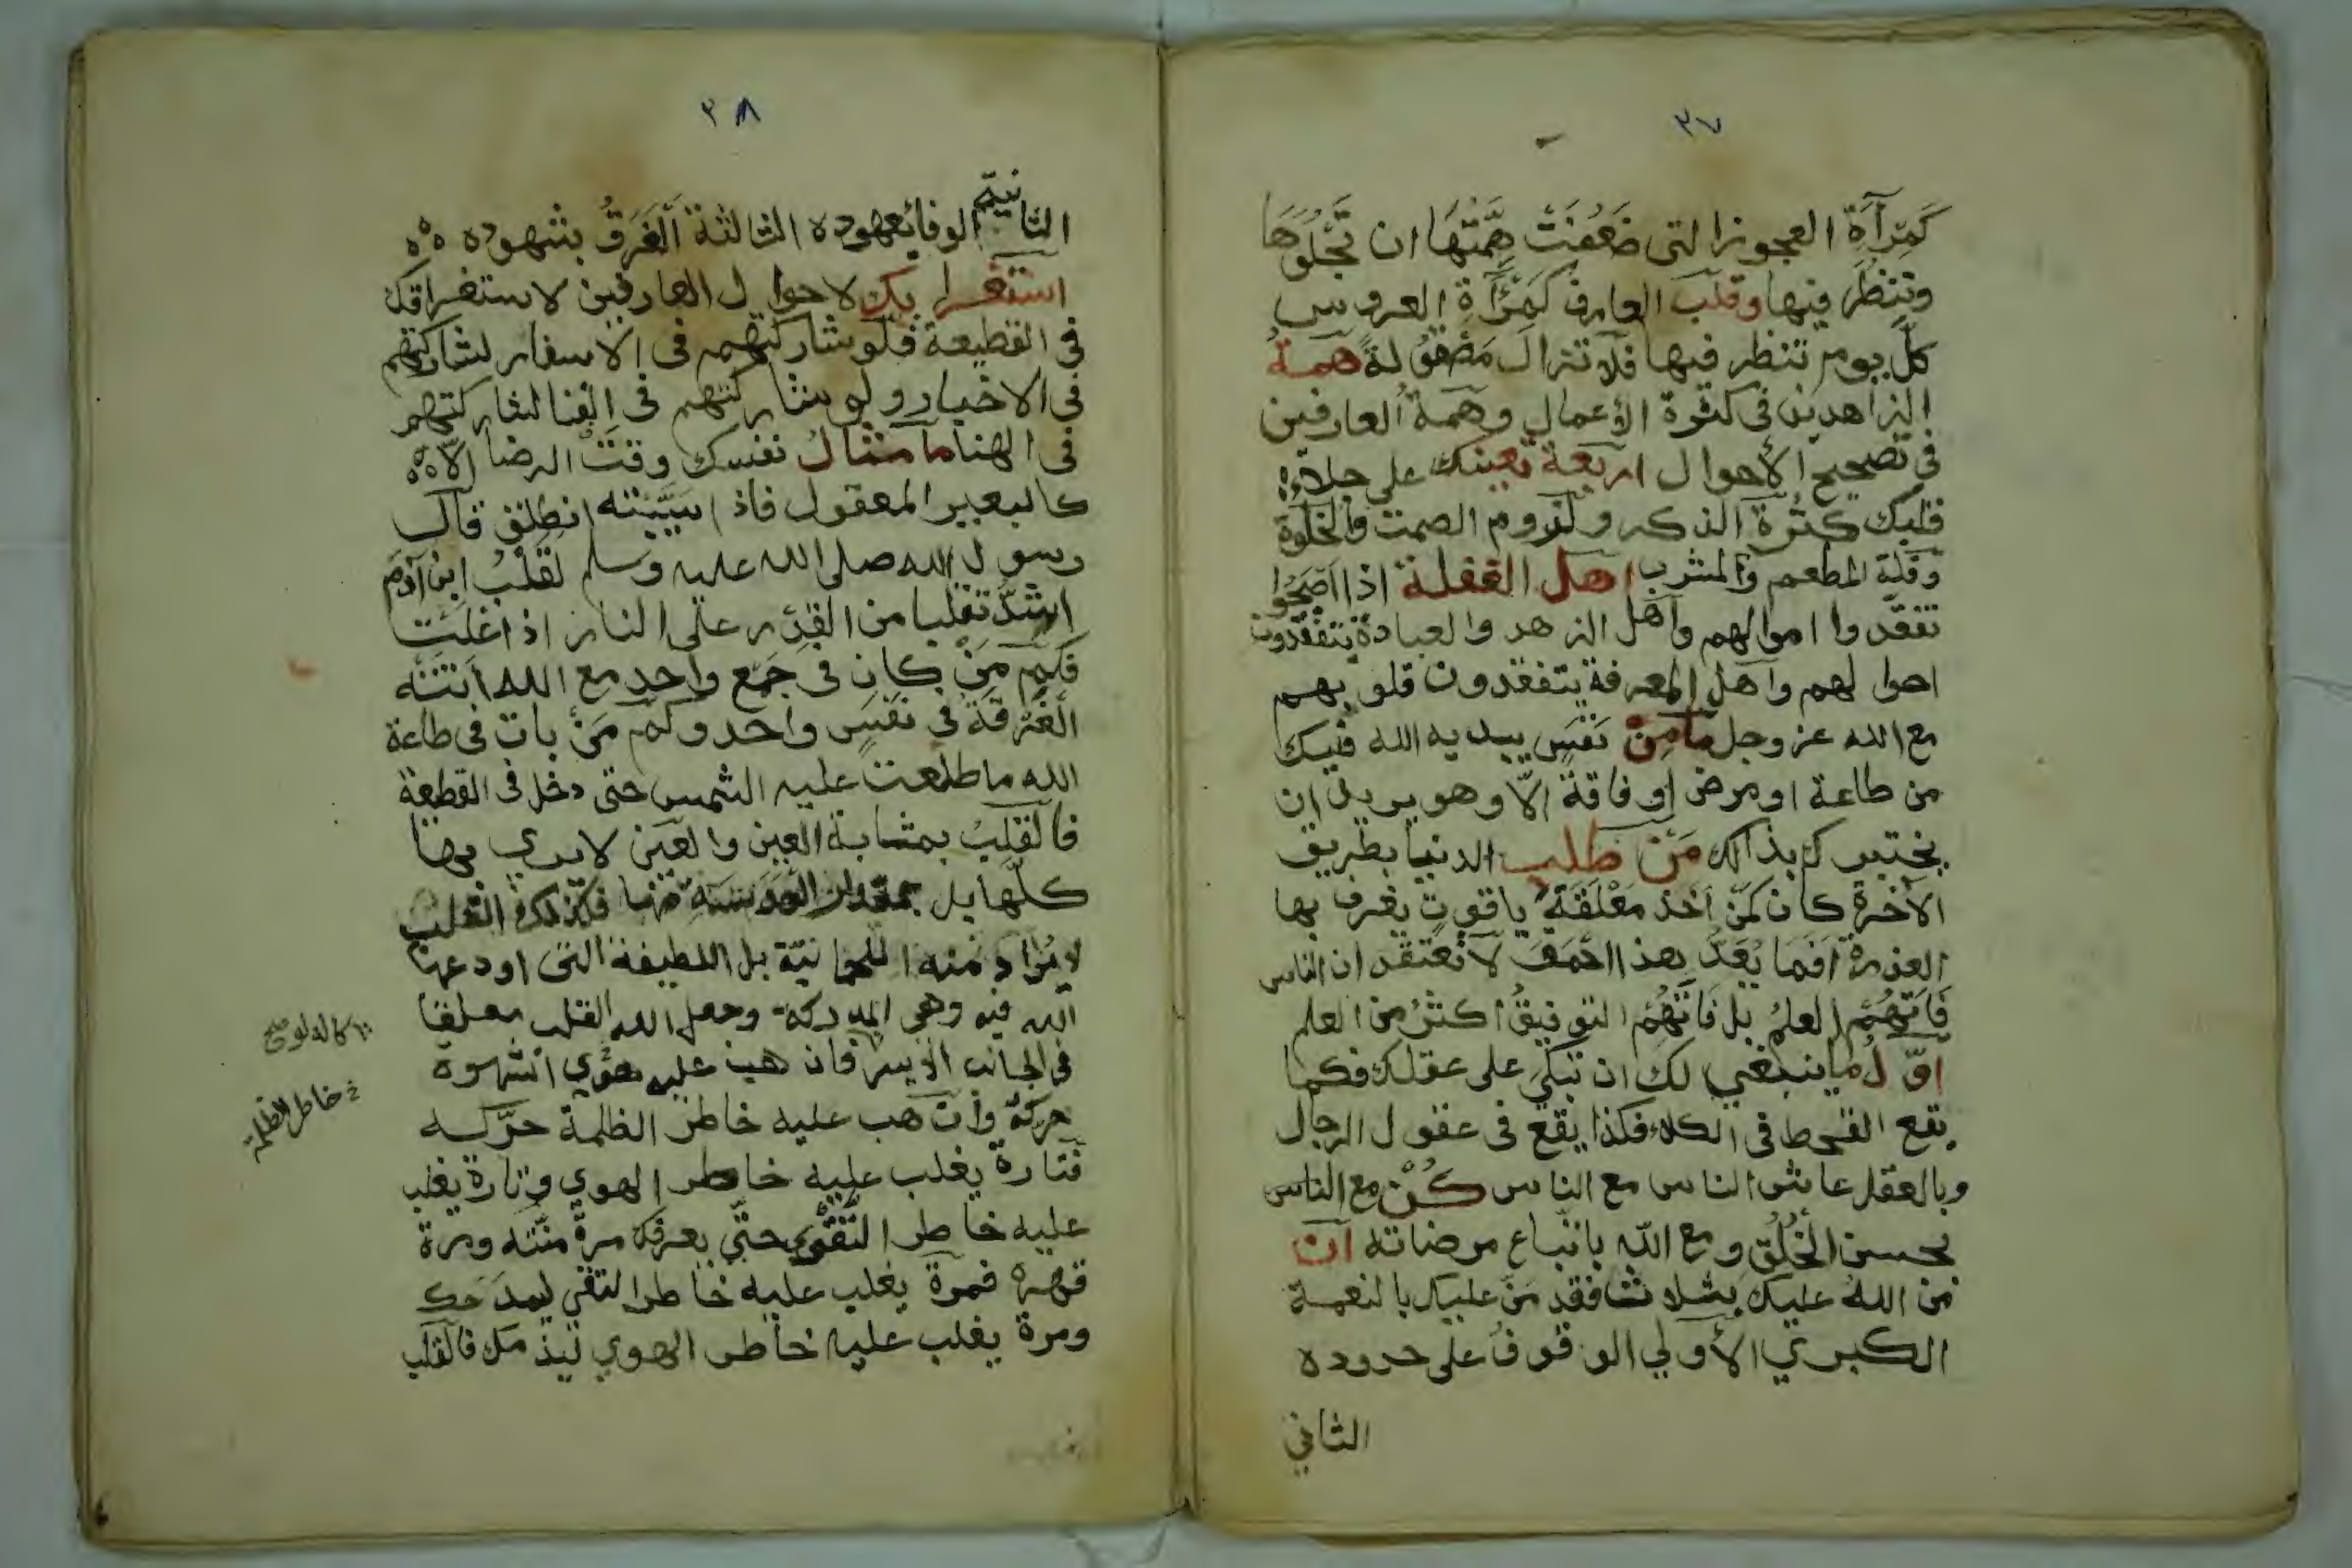 ٣٧
كَمِرآةِ العجوز التى ضَعُفَتْ هِمَّتُهَا ان تَجْلُوَهَا
وتنظُر فيها وقلب العارف كَمِرْآةِ العروس
كلَّ يوم تنظر فيها فلا تزال مَصْقُولة همة
الزاهدين فى كثرة الأعمال وهمة العارفين
فى تصحيح الأحوال اربعة تعينك على جلاء
قلبك كثرة الذكر ولزوم الصمت والخلوة
وقلة المطعم والمشرب اهل الغفلة اذا اصبحوا
تفقدوا اموالهم واهل الزهد والعبادة يتفقدون
احوالهم واهل المعرفة يتفقدون قلوبهم
مع الله عز وجل ما من نَفَسٍ يبديه الله فيك
من طاعة او مرض او فاقة الّا وهو يريد ان
يختبرك بذالك مَنْ طلب الدنيا بطريق
الآخرة كان كمن اخذ مَعْلَقَة ياقوت يغرف بها
العذرة افما يُعَدُّ هذا احمق لا تعتقد ان الناس
فَاتَهُمُ العلمُ بل فَاتَهُمُ التوفيقُ اكثرُ من العلم
اوّلُ ما ينبغي لك ان تبكى على عقلك فكما
يقع القحط فى الكلاء فكذا يقع فى عقول الرجال
وبالعقل عاش الناس مع الناس كُنْ مع الناس
بحسن الخُلُق ومع اللّٰه باتباع مرضاته ان
من اللهُ عليك بثلاث فقد مَنّ عليك بالنعمة
الكبري الأولي الوقوفُ على حدوده
الثاني
٣٨
الثانية الوفا بعهوده الثالثة اَلْغَرَقُ بشهوده
استغرابك لاحوال العارفين لاستغراقك
فى القطيعة فلو شاركتهم فى الاسفار لشاركتهم
فى الاخيار ولو شاركتهم فى الفنا لشاركتهم
فى الهنا ما مثالُ نفسك وقتَ الرضا الّا
كالبعير المعقول فاذا سَيَّبْتَه انطلق قال
رسول الله صلى الله عليه وسلم لقَلْبُ ابن آدم
اشدّ تقلبا من القِدْر على النار اذا غَلَتْ
فكم مَنْ كان فى جَمْع واحد مع الله أتَتْه
الفُرقة فى نفَسٍ واحد وكم مَنْ بات فى طاعة
الله ما طلعت عليه الشمس حتى دخل فى القطيعة
فالقلبُ بمثابة العين والعَين لا يرى بها
كلّها بل بمقدار العدسة منها فكذلك القلب
لا يُراد منه اللحمانيّة بل اللطيفة التى اودعها
اللّٰه فيه وهى المدركة وجعل اللّٰه القلب معلقا
فى الجانب الايسر فان هب عليه هوي الشهوة
حركه وان هب عليه خاطر الظلمة حرّكه
فتارة يغلب عليه خاطر الهوي وتارة يغلب
عليه خاطر التَّقْوي حتى يعرفك مرةً منّته ومرة
قهره فمرة يغلب عليه خاطر التقي ليمدَحَك
ومرة يغلب عليه خاطر الهوي ليذمك فالقلب
خاطر الظلمة